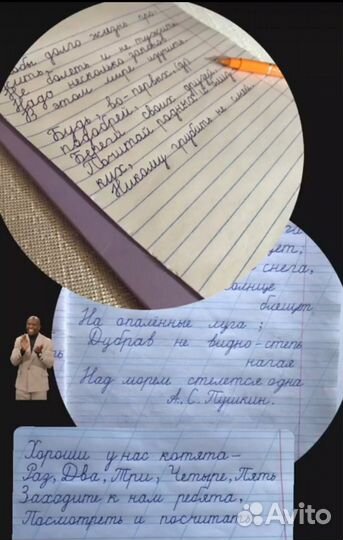 долго жизнь
болеть и не тужить
Надо несколько законов
В этом мире изучить.
Будь, во-первых,
подобрей,
Береги своих друзей
Почитай родных и близ
ких,
Никому грубить не смей.
снега,
блещет
На опалённые луга;
Дубрав не видно - степь
нагая
Над морем стелется одна
А.С. Пушкин.
Хороши у нас котята -
Раз, Два, Три, Четыре, Пять
Заходите к нам ребята,
Посмотреть и посчитать
Avito